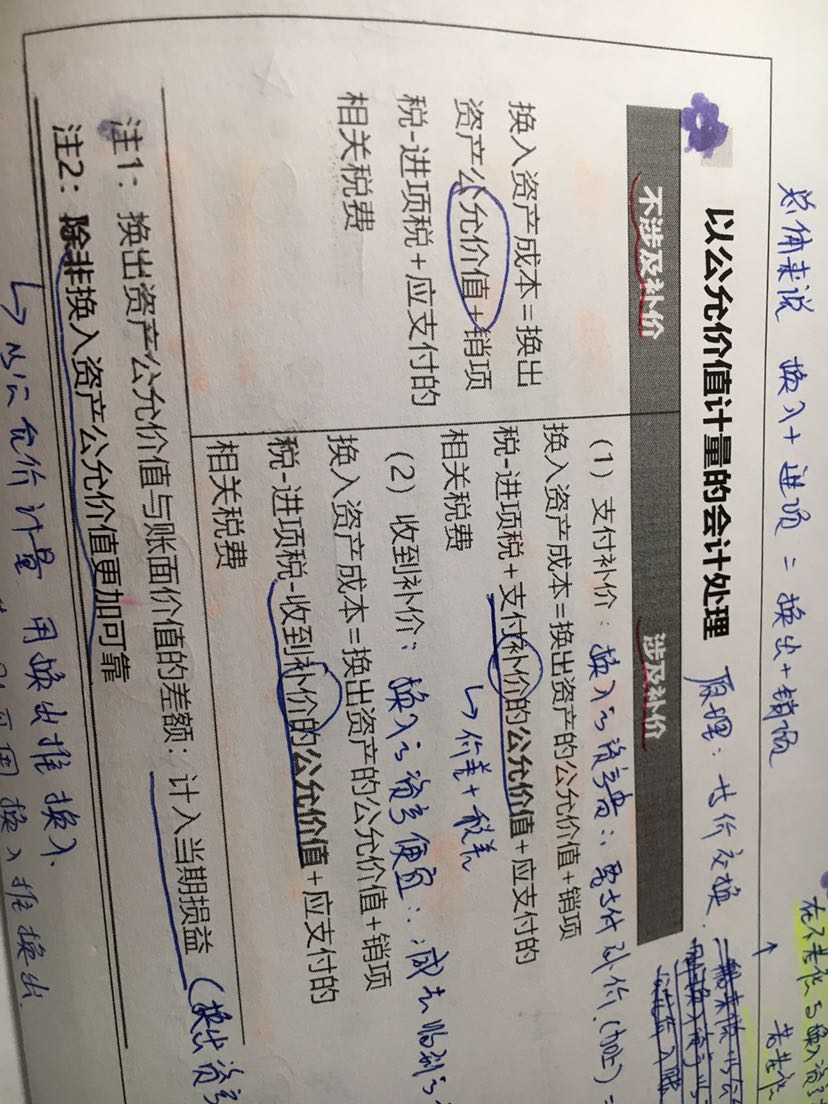 总体来说 换入+进项=换出+销项
以公允价值计量的会计处理
原理：等价交换
不涉及补价
涉及补价
换入资产成本=换出
资产公允价值+销项
税-进项税+应支付的
相关税费
（1）支付补价：换入的资产贵∴要支付补价（加上）=
换入资产成本=换出资产的公允价值+销项
税-进项税+支付补价的公允价值+应支付的
相关税费
↳价差+税差
（2）收到补价：换入的资产便宜∴减去收到的
换入资产成本=换出资产的公允价值+销项
税-进项税-收到补价的公允价值+应支付的
相关税费
注1：换出资产公允价值与账面价值的差额：计入当期损益（换出资产
注2：除非换入资产公允价值更加可靠
↳以公允价计量 用换出推换入.
换入推换出.